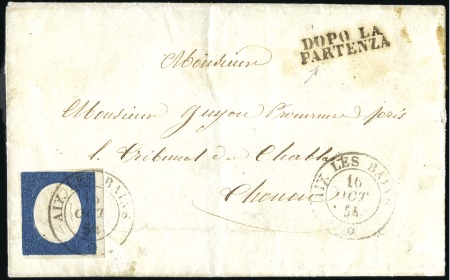 DOPO LA
PARTENZA
Monsieur
Monsieur Guyon Procureur près
le Tribunal de Chabl
Thonon
AIX LES BAINS
16
OCT
54
AIX LES BAINS
OCT
54